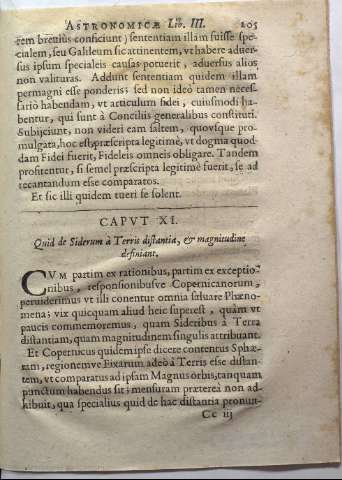 ASTRONOMICÆ Lib. III. 205
rem breuius conficiunt; sententiam illam fuisse spe-
cialem, seu Galileum sic attinentem, vt habere aduer-
sus ipsum specialeis causas potuerit, aduersus alios
non valituras. Addunt sententiam quidem illam
permagni esse ponderis; sed non ideò tamen neces-
sariò habendam, vt articulum fidei, cuiusmodi ha-
bentur, qui sunt à Conciliis generalibus constituti.
Subijciunt, non videri eam saltem, quovsque pro-
mulgata, hoc est, præscripta legitimè, vt dogma quod-
dam Fidei fuerit, Fideleis omneis obligare. Tandem
profitentur, si semel præscripta legitimè fuerit, se ad
recantandum esse comparatos.
Et sic illi quidem tueri se solent.
CAPVT XI.
Quid de Siderum à Terris distantia, & magnitudine
definiant.
CVM partim ex rationibus, partim ex exceptio-
nibus, responsionibusve Copernicanorum,
peruiderimus vt illi conentur omnia saluare Phæno-
mena; vix quicquam aliud heic superest, quàm vt
paucis commemoremus, quam Sideribus à Terra
distantiam, quam magnitudinem singulis attribuant.
Et Copernicus quidem ipse dicere contentus Sphæ-
ram, regionemve Fixarum adeò à Terris esse distan-
tem, vt comparatus ad ipsam Magnus orbis, tanquam
punctum habendus sit; mensuram præterea non ad-
hibuit, qua specialius quid de hac distantia pronun-
Cc iij